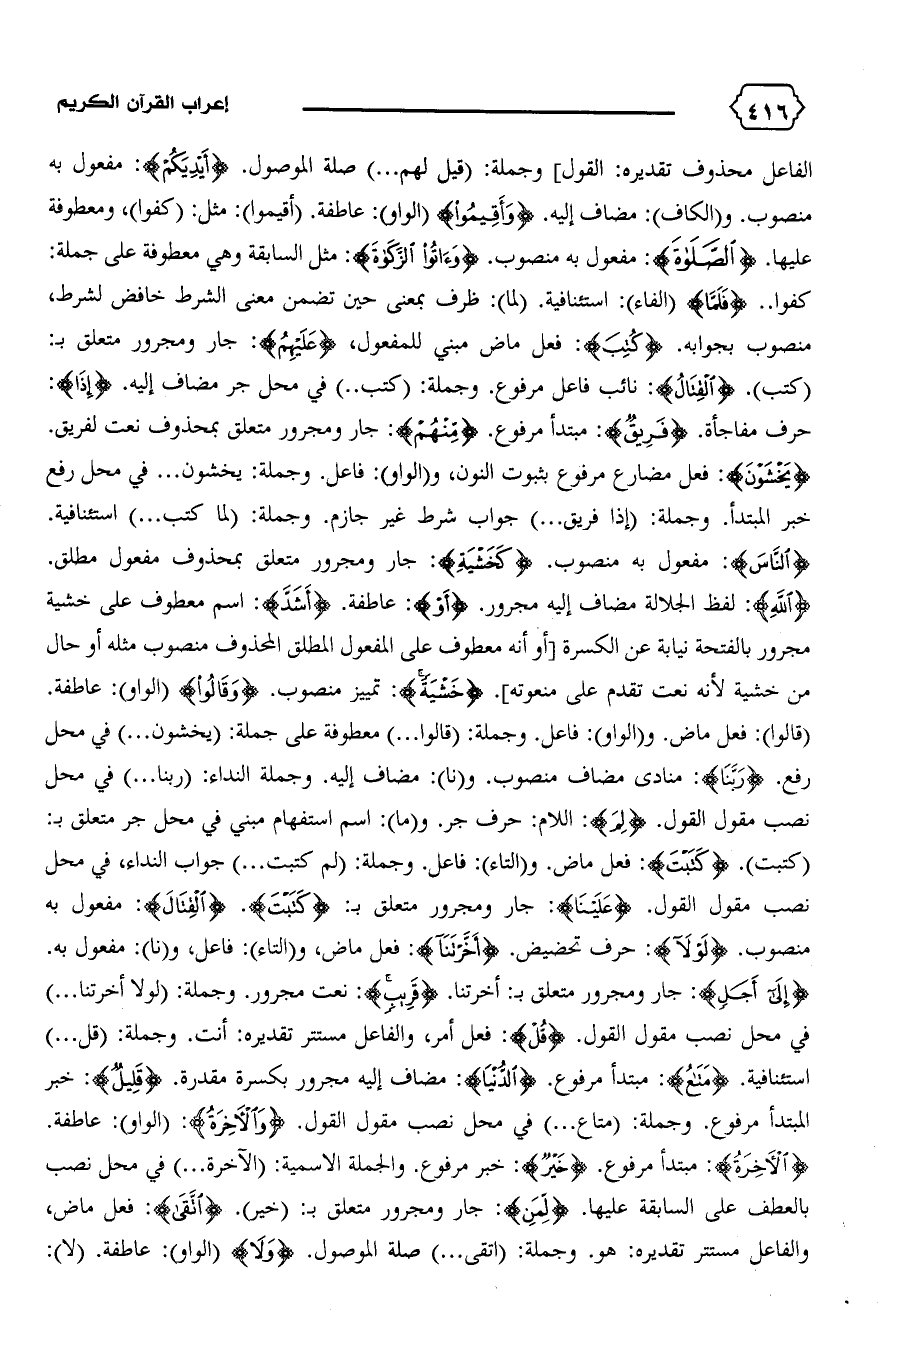 ٤١٦ إعراب القرآن الكريم
الفاعل محذوف تقديره: القول] وجملة: (قيل لهم...) صلة الموصول. ﴿أَيْدِيَكُمْ﴾: مفعول به
منصوب. و(الكاف): مضاف إليه. ﴿وَأَقِيمُواْ﴾ (الواو): عاطفة. (أقيموا): مثل: (كفوا)، ومعطوفة
عليها. ﴿ٱلصَّلَوٰةَ﴾: مفعول به منصوب. ﴿وَءَاتُواْ ٱلزَّكَوٰةَ﴾: مثل السابقة وهي معطوفة على جملة:
كفوا.. ﴿فَلَمَّا﴾ (الفاء): استئنافية. (لما): ظرف بمعنى حين تضمن معنى الشرط خافض لشرط،
منصوب بجوابه. ﴿كُتِبَ﴾: فعل ماض مبني للمفعول، ﴿عَلَيْهِمُ﴾: جار ومجرور متعلق بـ:
(كتب). ﴿ٱلْقِتَالُ﴾: نائب فاعل مرفوع. وجملة: (كتب..) في محل جر مضاف إليه. ﴿إِذَا﴾:
حرف مفاجأة. ﴿فَرِيقٌ﴾: مبتدأ مرفوع. ﴿مِّنْهُمْ﴾: جار ومجرور متعلق بمحذوف نعت لفريق.
﴿يَخْشَوْنَ﴾: فعل مضارع مرفوع بثبوت النون، و(الواو): فاعل. وجملة: يخشون... في محل رفع
خبر المبتدأ. وجملة: (إذا فريق...) جواب شرط غير جازم. وجملة: (لما كتب...) استئنافية.
﴿ٱلنَّاسَ﴾: مفعول به منصوب. ﴿كَخَشْيَةِ﴾: جار ومجرور متعلق بمحذوف مفعول مطلق.
﴿ٱللَّهِ﴾: لفظ الجلالة مضاف إليه مجرور. ﴿أَوْ﴾: عاطفة. ﴿أَشَدَّ﴾: اسم معطوف على خشية
مجرور بالفتحة نيابة عن الكسرة [أو أنه معطوف على المفعول المطلق المحذوف منصوب مثله أو حال
من خشية لأنه نعت تقدم على منعوته]. ﴿خَشْيَةً ۚ﴾: تمييز منصوب. ﴿وَقَالُواْ﴾ (الواو): عاطفة.
(قالوا): فعل ماض. و(الواو): فاعل. وجملة: (قالوا...) معطوفة على جملة: (يخشون...) في محل
رفع. ﴿رَبَّنَا﴾: منادى مضاف منصوب. و(نا): مضاف إليه. وجملة النداء: (ربنا...) في محل
نصب مقول القول. ﴿لِمَ﴾: اللام: حرف جر. و(ما): اسم استفهام مبني في محل جر متعلق بـ:
(كتبت). ﴿كَتَبْتَ﴾: فعل ماض. و(التاء): فاعل. وجملة: (لم كتبت...) جواب النداء، في محل
نصب مقول القول. ﴿عَلَيْنَا﴾: جار ومجرور متعلق بـ: ﴿كَتَبْتَ﴾. ﴿ٱلْقِتَالَ﴾: مفعول به
منصوب. ﴿لَوْلَآ﴾: حرف تحضيض. ﴿أَخَّرْتَنَآ﴾: فعل ماض، و(التاء): فاعل، و(نا): مفعول به.
﴿إِلَىٰٓ أَجَلٍ﴾: جار ومجرور متعلق بـ: أخرتنا. ﴿قَرِيبٍ ۗ﴾: نعت مجرور. وجملة: (لولا أخرتنا...)
في محل نصب مقول القول. ﴿قُلْ﴾: فعل أمر، والفاعل مستتر تقديره: أنت. وجملة: (قل...)
استئنافية. ﴿مَتَٰعُ﴾: مبتدأ مرفوع. ﴿ٱلدُّنْيَا﴾: مضاف إليه مجرور بكسرة مقدرة. ﴿قَلِيلٌ﴾: خبر
المبتدأ مرفوع. وجملة: (متاع...) في محل نصب مقول القول. ﴿وَٱلْأَخِرَةُ﴾: (الواو): عاطفة.
﴿ٱلْأَخِرَةُ﴾: مبتدأ مرفوع. ﴿خَيْرٌ﴾: خبر مرفوع. والجملة الاسمية: (الآخرة...) في محل نصب
بالعطف على السابقة عليها. ﴿لِّمَنِ﴾: جار ومجرور متعلق بـ: (خير). ﴿ٱتَّقَىٰ﴾: فعل ماض،
والفاعل مستتر تقديره: هو. وجملة: (اتقى...) صلة الموصول. ﴿وَلَا﴾ (الواو): عاطفة. (لا):